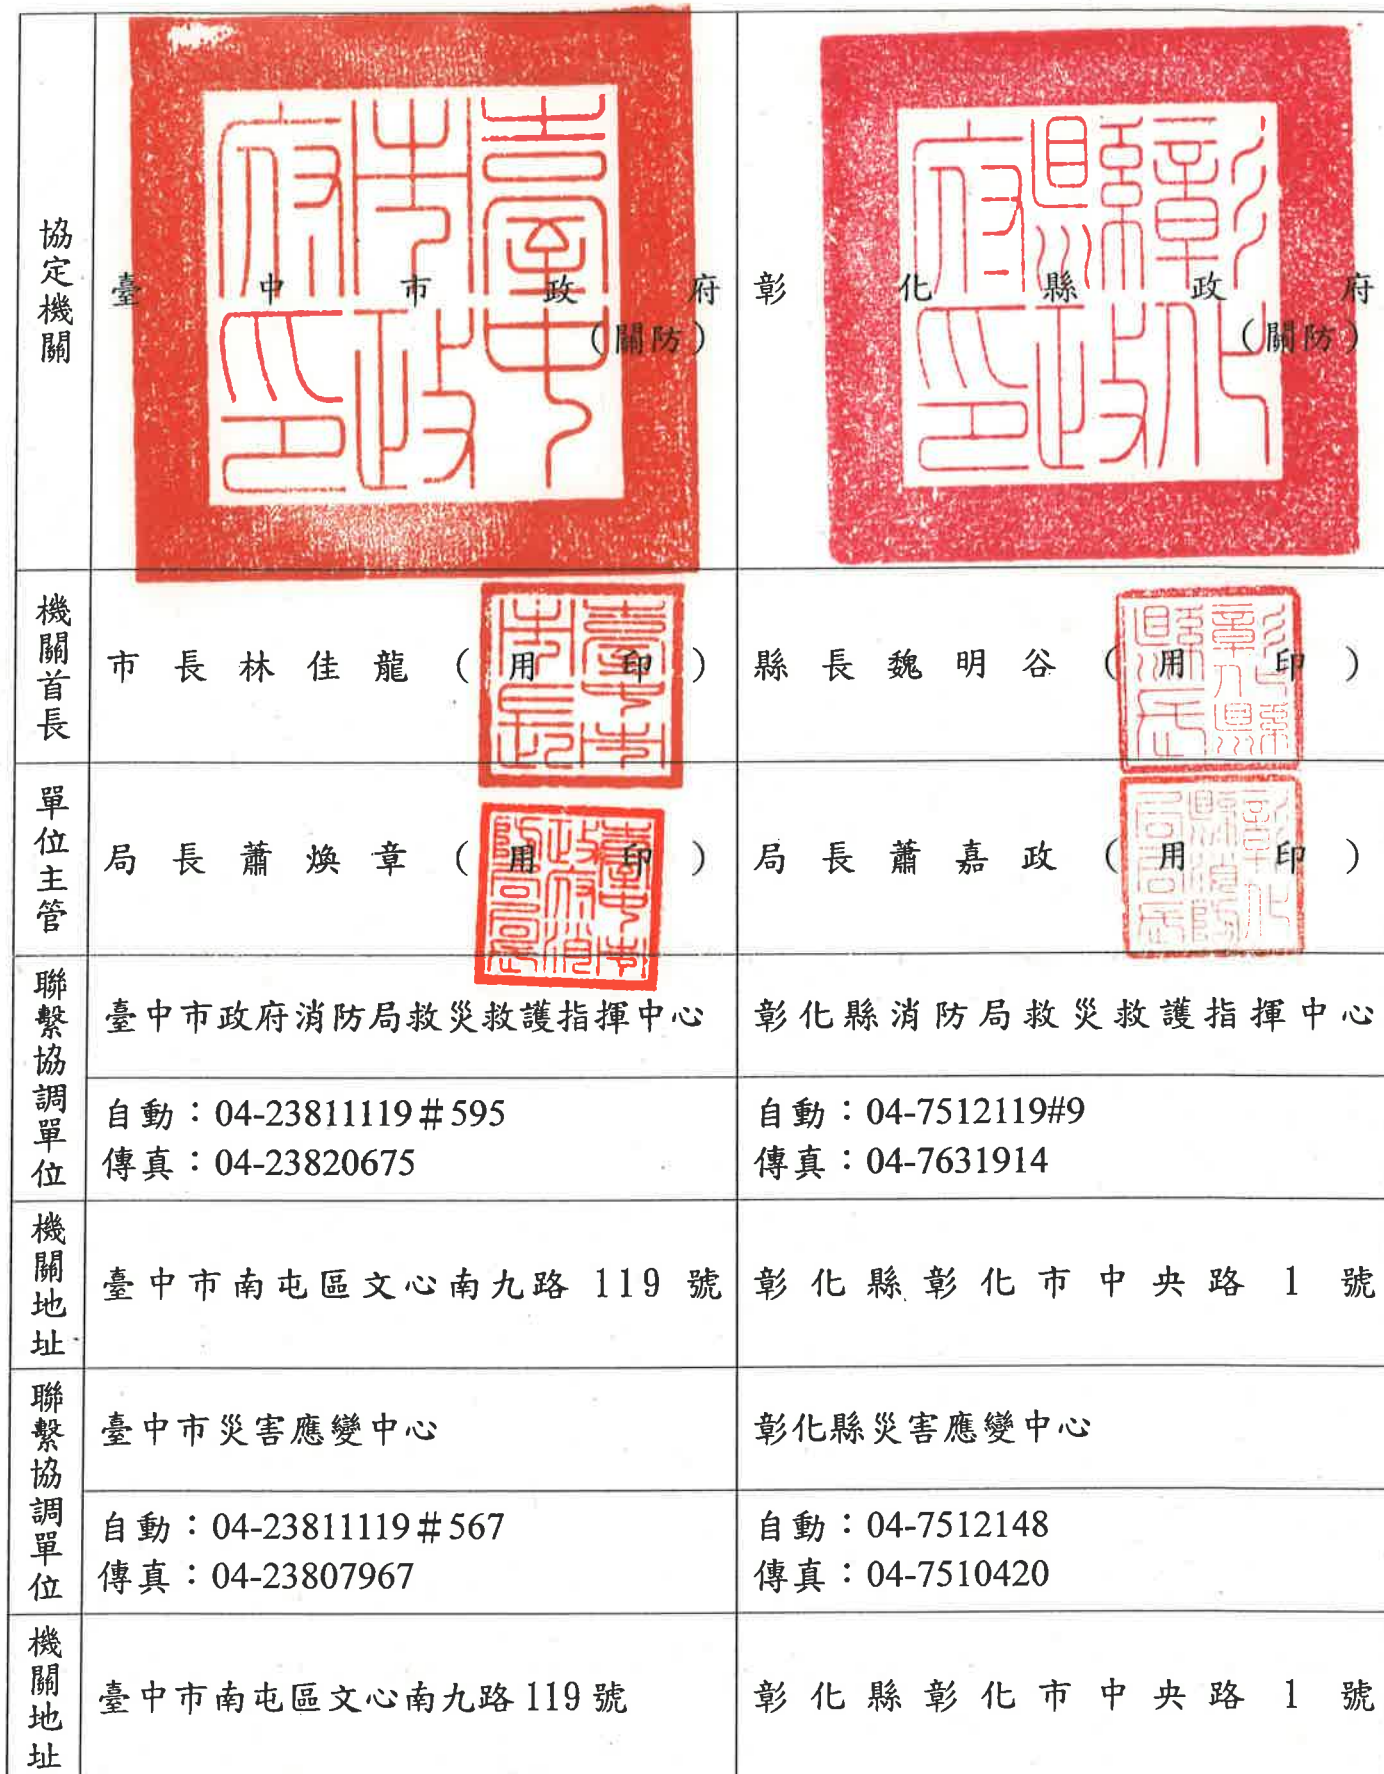 協定機關
臺中市政府
(關防)
彰化縣政府
(關防)
臺中市政府印
彰化縣政府印
機關首長
市長林佳龍(用印)
臺中市市長
縣長魏明谷(用印)
彰化縣縣長
單位主管
局長蕭煥章(用印)
臺中市政府消防局局長
局長蕭嘉政(用印)
彰化縣消防局局長
聯繫協調單位
臺中市政府消防局救災救護指揮中心
彰化縣消防局救災救護指揮中心
自動：04-23811119＃595
傳真：04-23820675
自動：04-7512119#9
傳真：04-7631914
機關地址
臺中市南屯區文心南九路 119 號
彰化縣彰化市中央路 1 號
聯繫協調單位
臺中市災害應變中心
彰化縣災害應變中心
自動：04-23811119＃567
傳真：04-23807967
自動：04-7512148
傳真：04-7510420
機關地址
臺中市南屯區文心南九路 119 號
彰化縣彰化市中央路 1 號